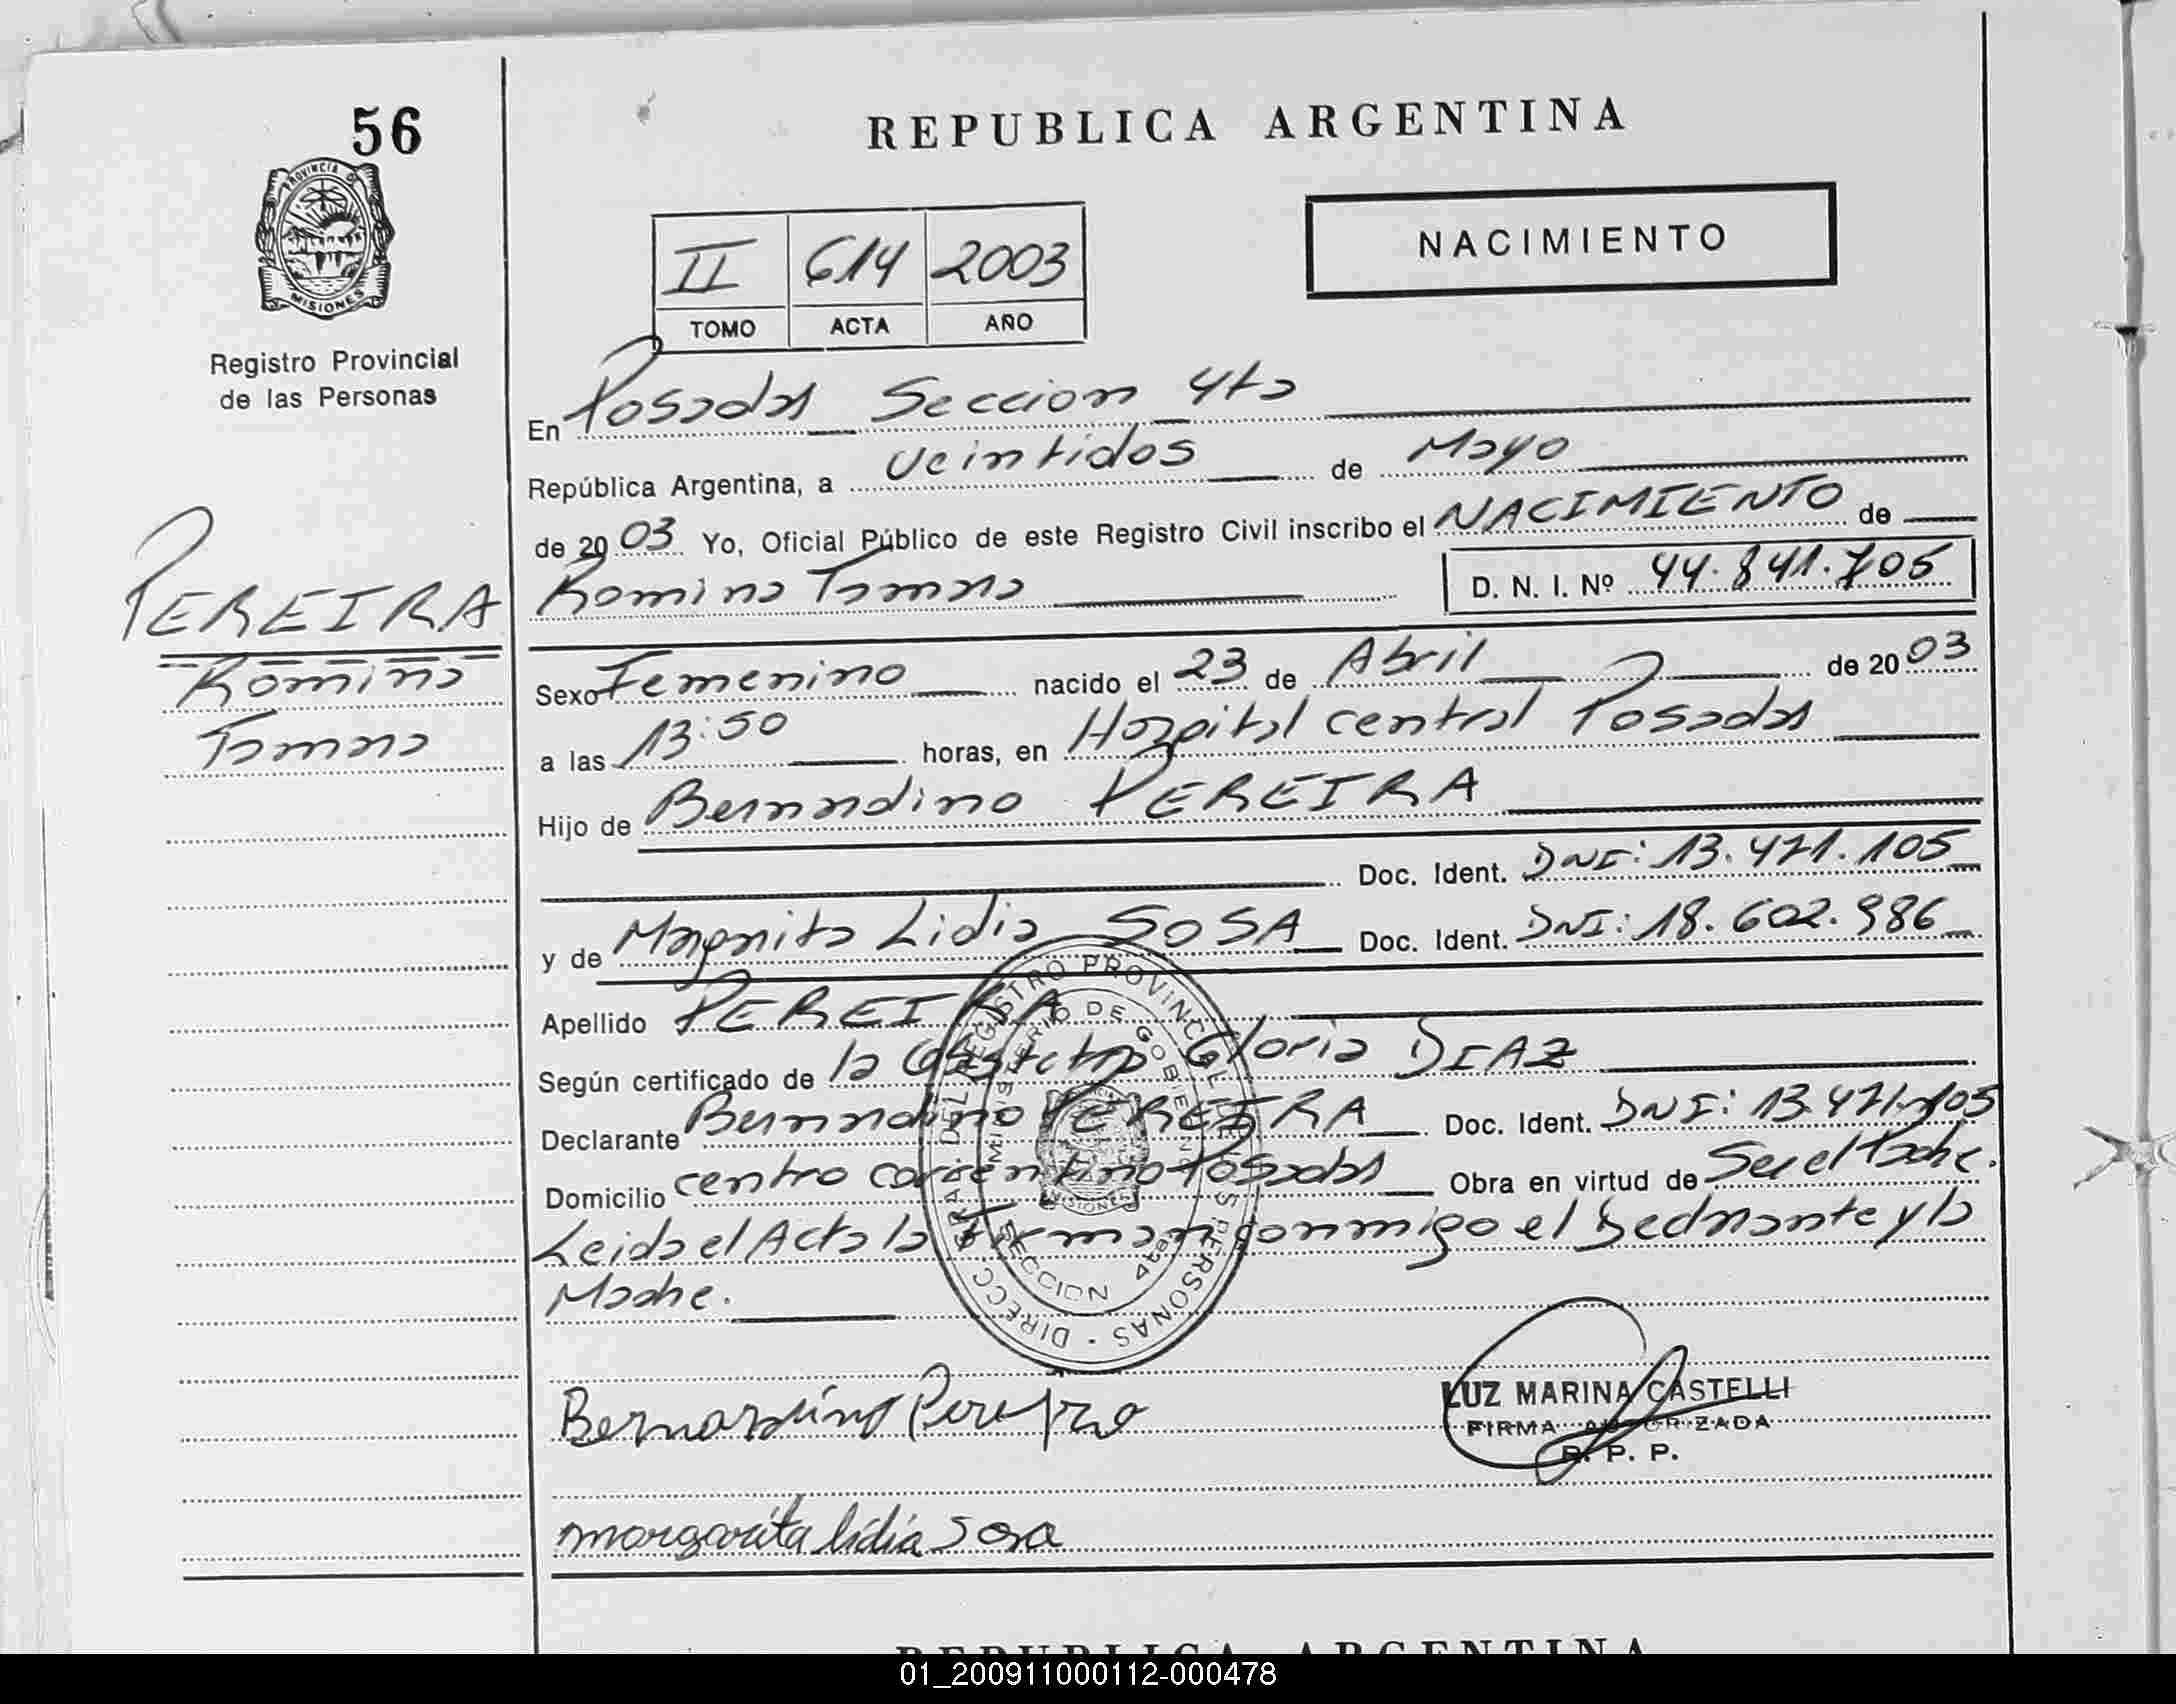 56
REPUBLICA ARGENTINA
PROVINCIA DE
MISIONES
NACIMIENTO
II 614 2003
TOMO ACTA AÑO
Registro Provincial
de las Personas
En Posadas Seccion 4ta
República Argentina, a veintidos de Mayo
de 2003 Yo, Oficial Público de este Registro Civil inscribo el NACIMIENTO de
Romina Tamara D. N. I. Nº 44.841.705
PEREIRA
Romina
Tamara
Sexo Femenino nacido el 23 de Abril de 2003
a las 13:50 horas, en Hospital central Posadas
Hijo de Bernardino PEREIRA
Doc. Ident. DNI: 13.471.105
y de Margarita Lidia SOSA Doc. Ident. DNI: 18.602.986
Apellido PEREIRA
Según certificado de la Obstetra Gloria DIAZ
Declarante Bernardino PEREIRA Doc. Ident. DNI: 13.471.105
Domicilio centro correntino Posadas Obra en virtud de Ser el Padre.
Leida el Acta la Firman conmigo el Declarante y la
Madre.
MINISTERIO DE GOBIERNO
SECCION 4ta
MISIONES
Bernardino Pereira
LUZ MARINA CASTELLI
FIRMA AUTORIZADA
R. P. P.
margarita lidia Sosa
REPUBLICA ARGENTINA
01_200911000112-000478